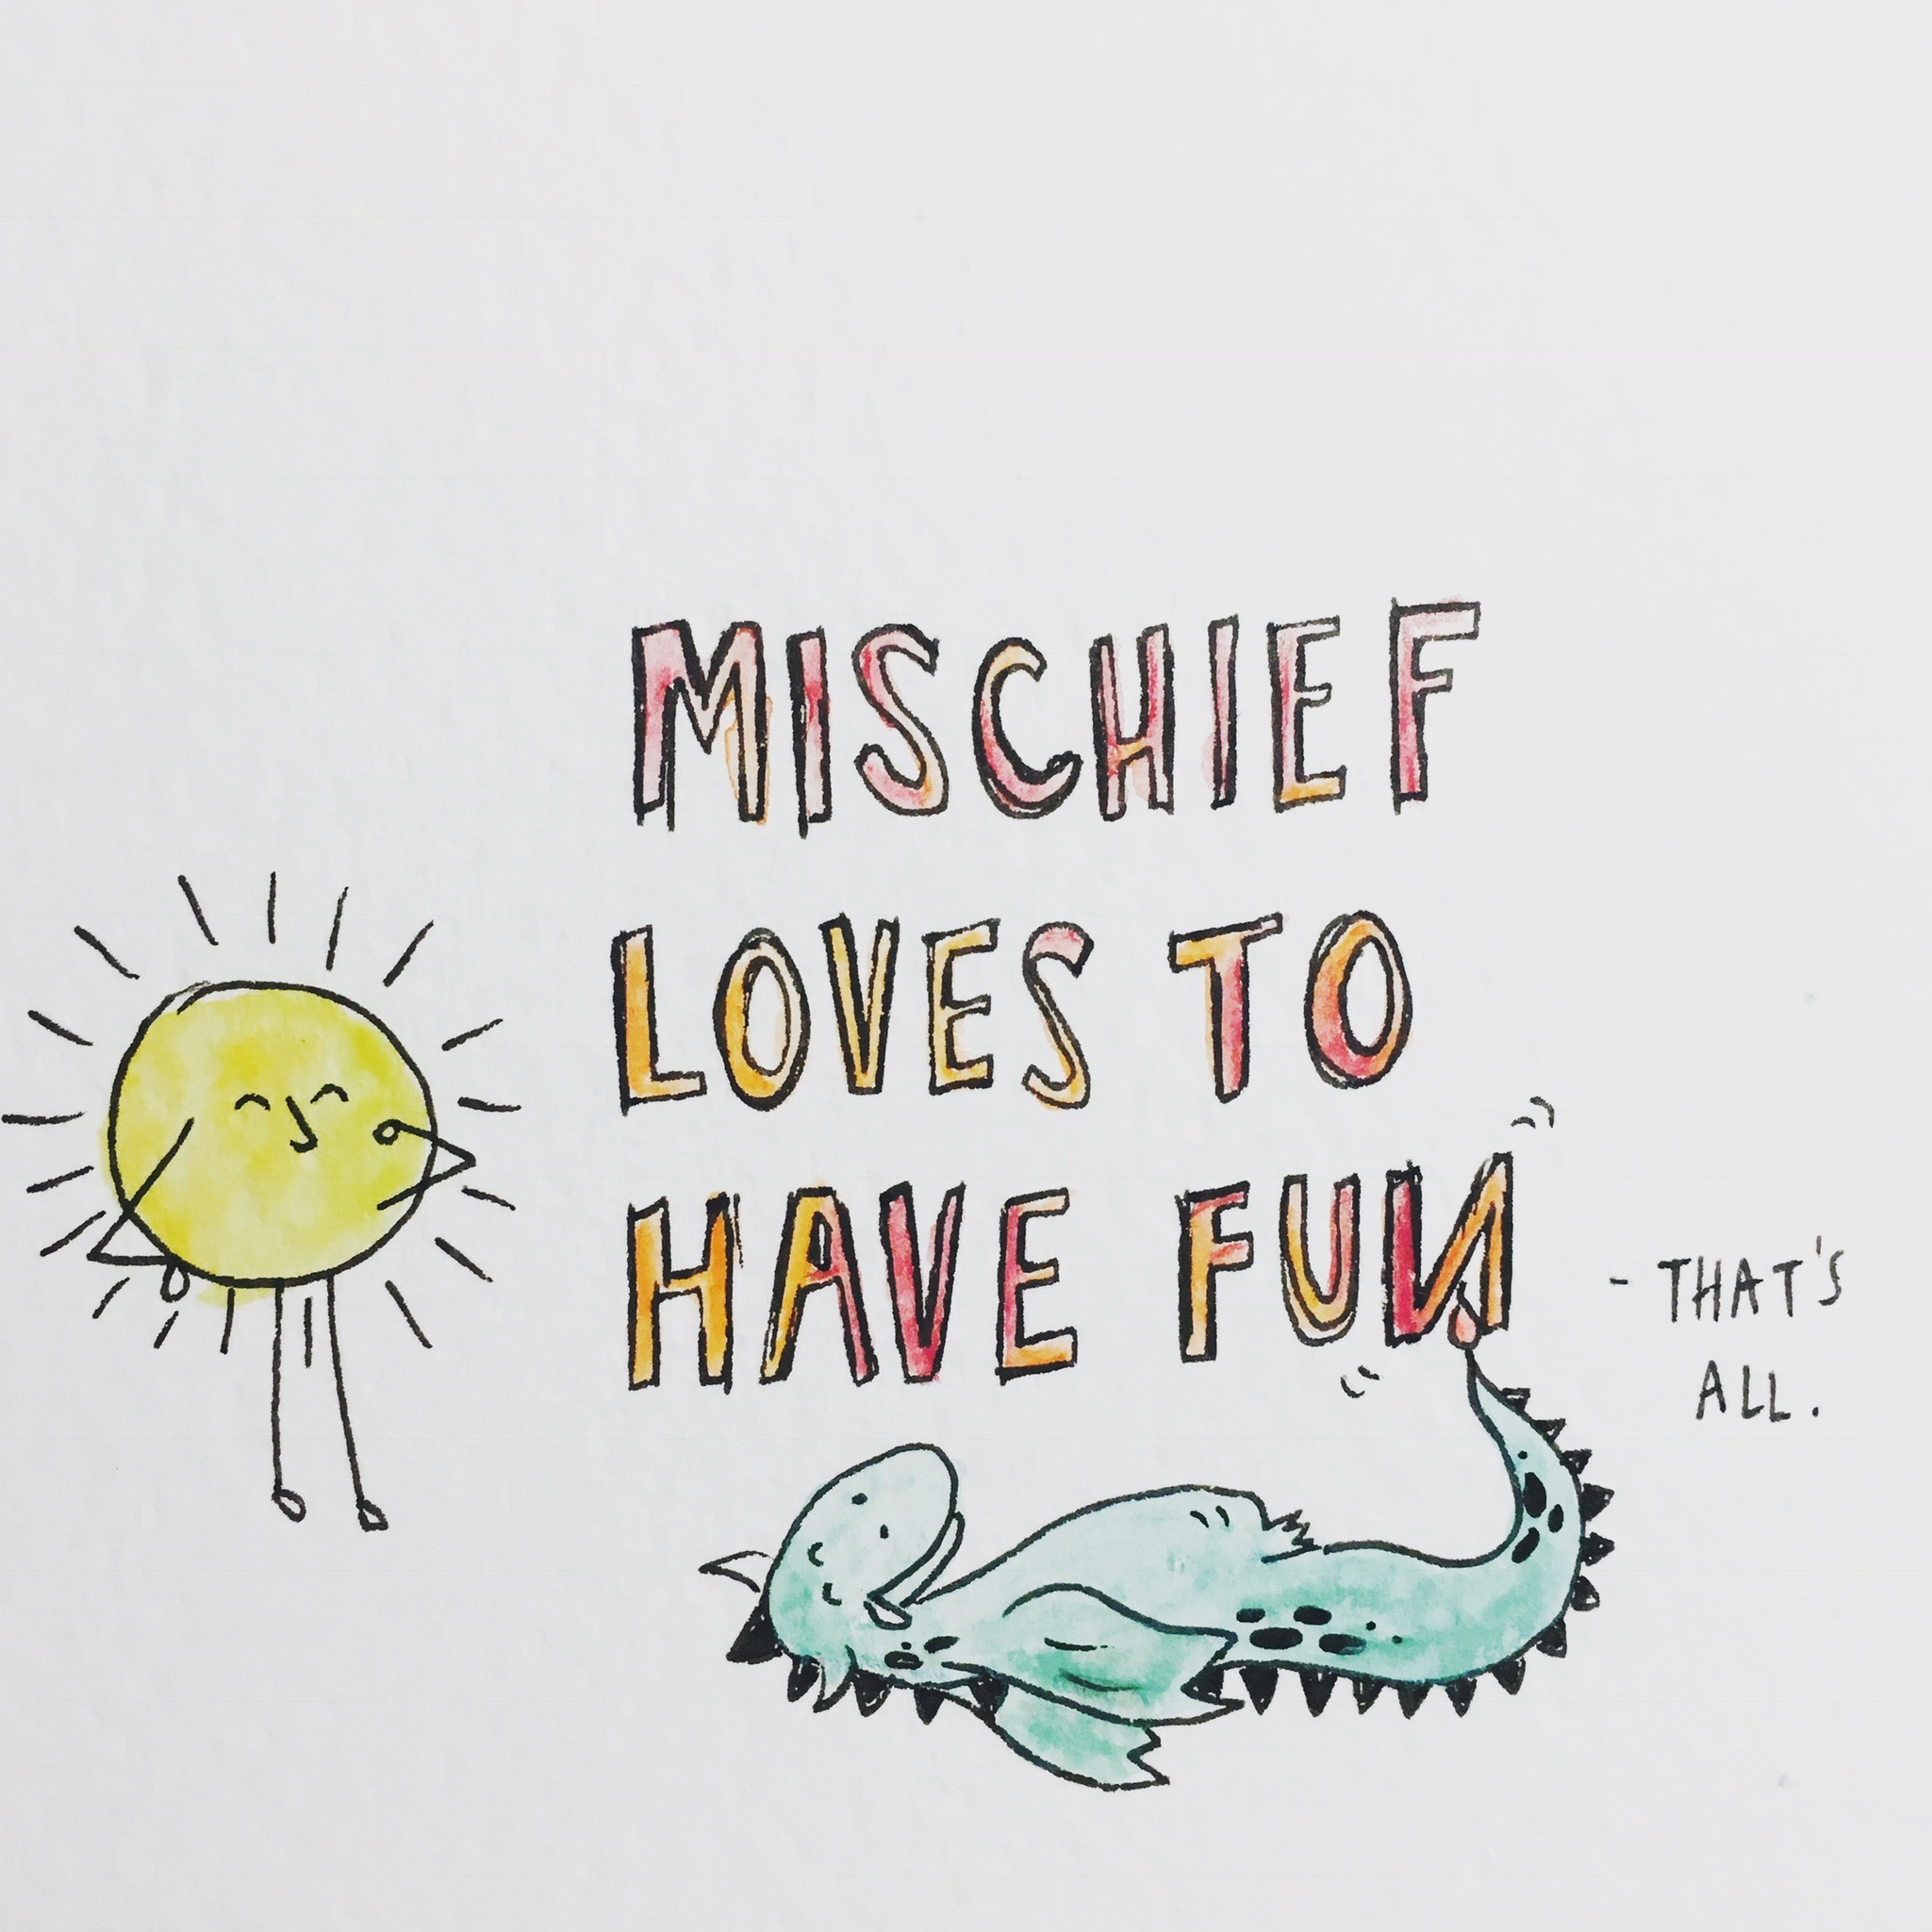 MISCHIEF
LOVES TO
HAVE FUN
- THAT'S
ALL.